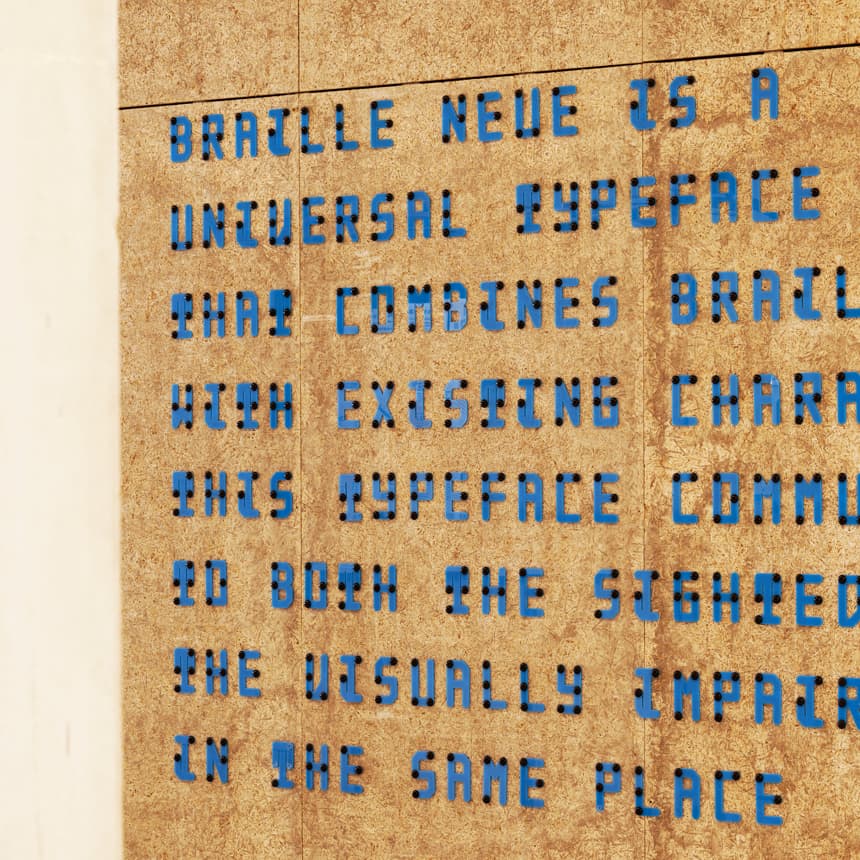 BRAILLE NEUE IS A
UNIVERSAL TYPEFACE
THAT COMBINES BRAIL
WITH EXISTING CHARA
THIS TYPEFACE COMMU
TO BOTH THE SIGHTED
THE VISUALLY IMPAIR
IN THE SAME PLACE